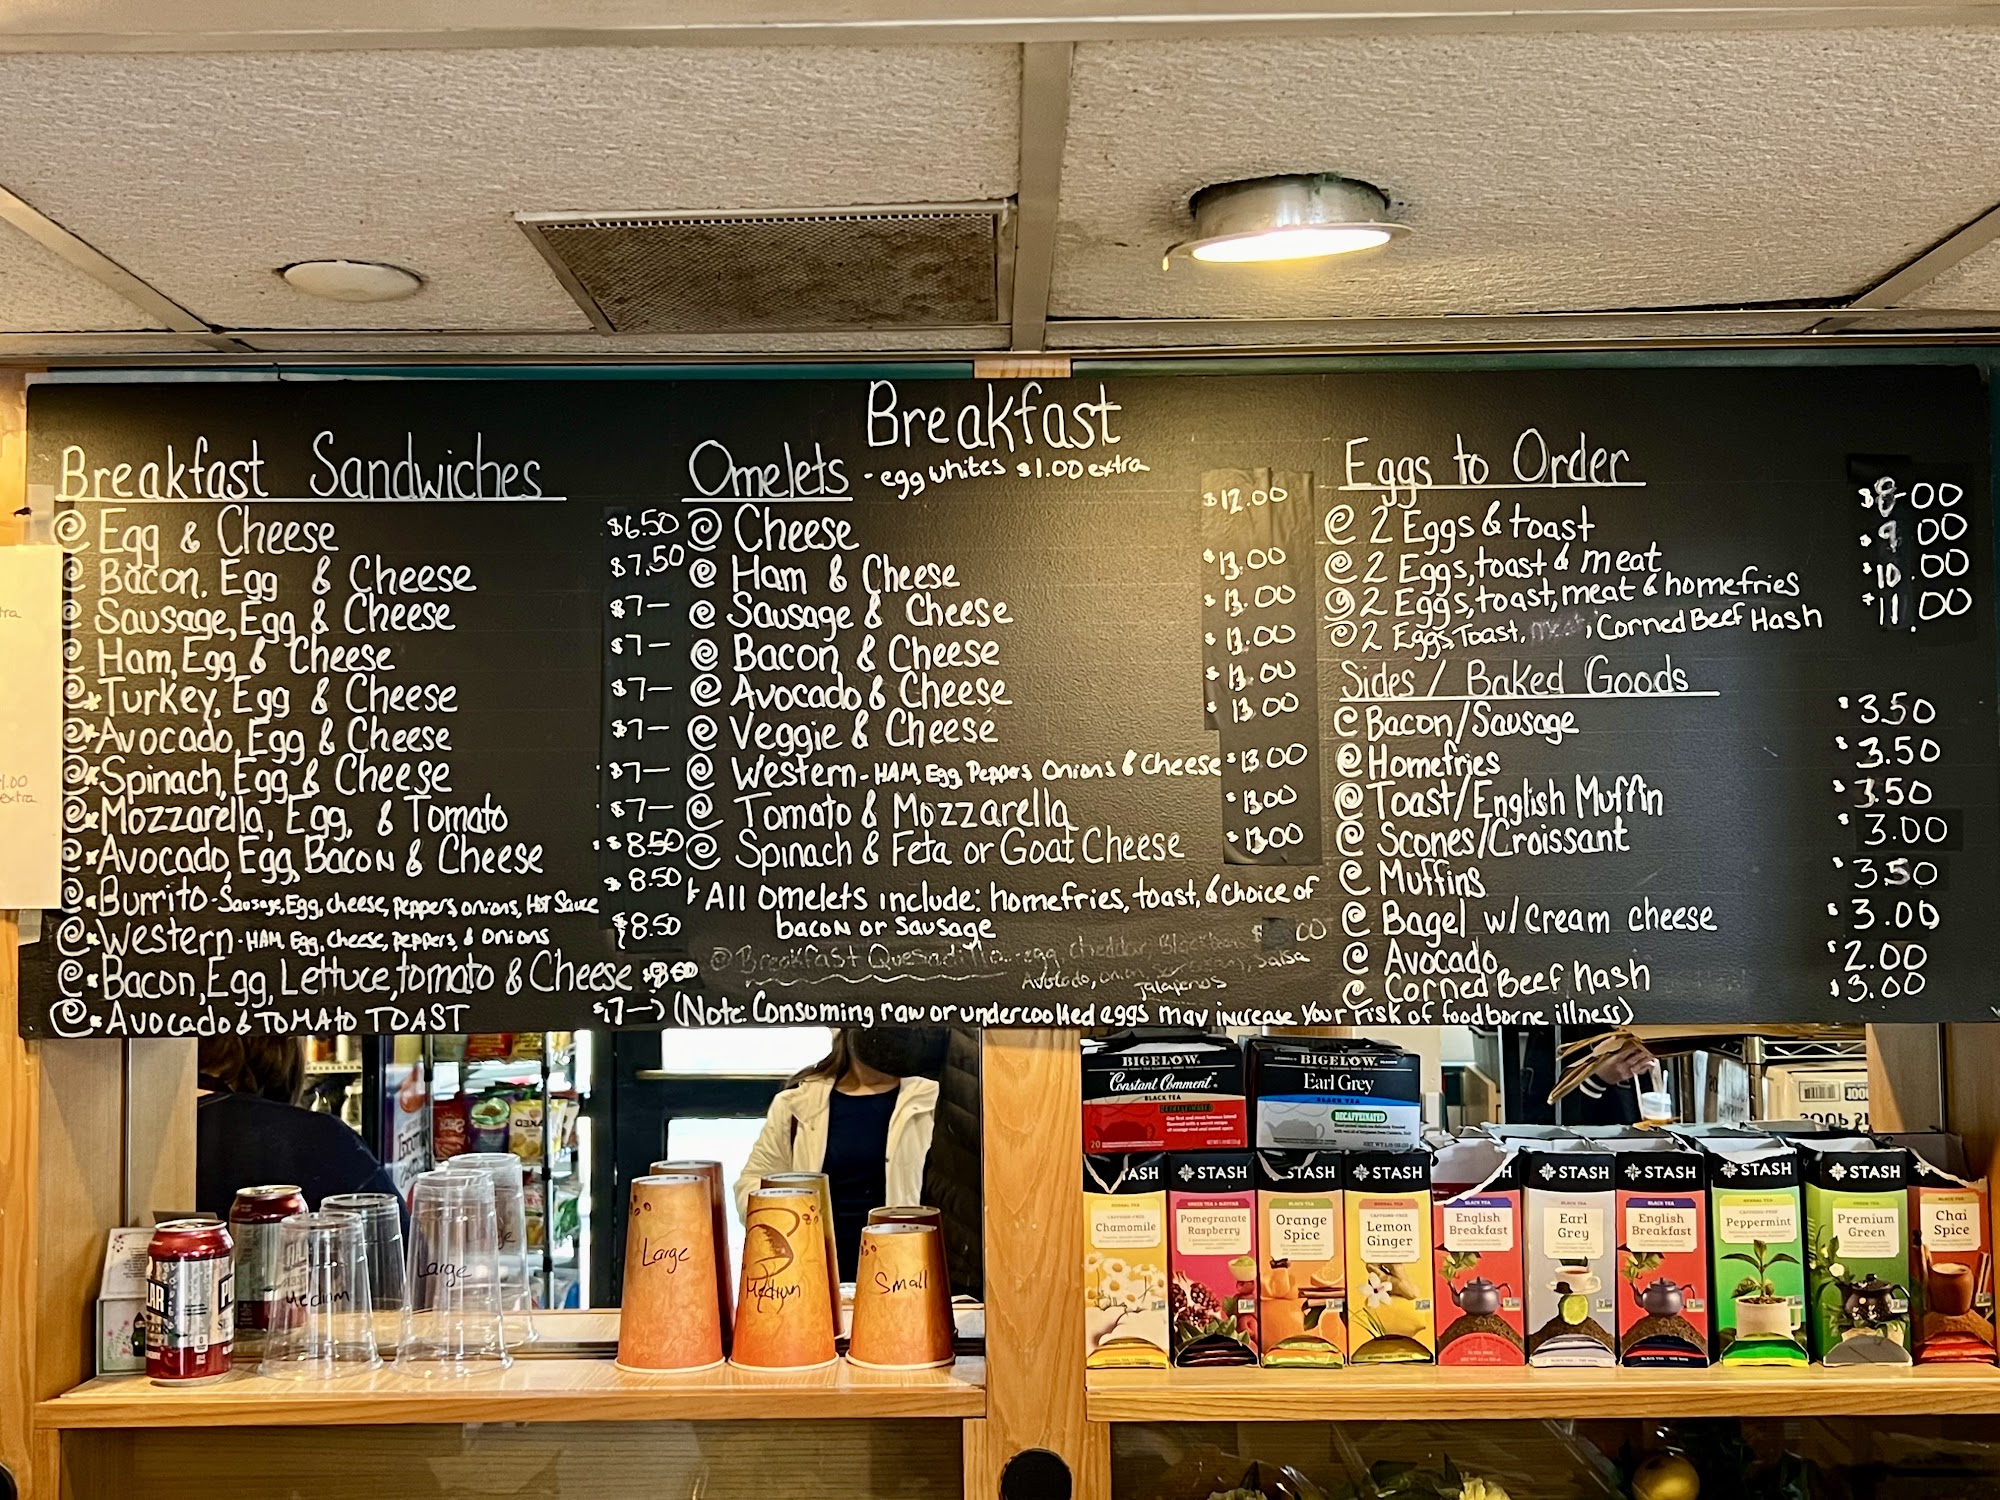 Breakfast
Breakfast Sandwiches
Egg & Cheese $6.50
Bacon, Egg & Cheese $7.50
Sausage, Egg & Cheese $7—
Ham, Egg & Cheese $7—
*Turkey, Egg & Cheese $7—
*Avocado, Egg & Cheese $7—
*Spinach, Egg & Cheese $7—
*Mozzarella, Egg, & Tomato $7—
*Avocado, Egg, Bacon & Cheese $8.50
*Burrito - Sausage, Egg, cheese, peppers, onions, Hot Sauce $8.50
*Western - HAM, Egg, Cheese, peppers, & onions $8.50
*Bacon, Egg, Lettuce, tomato & Cheese $8.50
*Avocado & TOMATO TOAST $17—
Omelets - egg whites $1.00 extra
Cheese $12.00
Ham & Cheese $13.00
Sausage & Cheese $13.00
Bacon & Cheese $13.00
Avocado & Cheese $13.00
Veggie & Cheese $13.00
Western - HAM, Egg, Peppers, Onions & Cheese $13.00
Tomato & Mozzarella $13.00
Spinach & Feta or Goat Cheese $13.00
* All omelets include: homefries, toast, & choice of
bacon or sausage
Breakfast Quesadilla - egg, cheddar, Black bean $ 00
Avocado, onion, salsa
jalapenos
(Note: Consuming raw or undercooked eggs may increase your risk of foodborne illness)
Eggs to Order
2 Eggs & toast $8.00
2 Eggs, toast & meat $9.00
2 Eggs, toast, meat & homefries $10.00
2 Eggs Toast, meat, Corned Beef Hash $11.00
Sides / Baked Goods
Bacon/Sausage $3.50
Homefries $3.50
Toast/English Muffin $3.50
Scones/Croissant $3.00
Muffins $3.50
Bagel w/cream cheese $3.00
Avocado $2.00
Corned Beef Hash $3.00
tra
1.00
extra
BIGELOW
"Constant Comment"
BLACK TEA
DECAFFEINATED
20
BIGELOW
Earl Grey
BLACK TEA
DECAFFEINATED
TASH
Chamomile
STASH
Pomegranate
Raspberry
STASH
Orange
Spice
STASH
Lemon
Ginger
H
English
Breakfast
STASH
Earl
Grey
STASH
English
Breakfast
STASH
Peppermint
STASH
Premium
Green
STASH
Chai
Spice
Medium
Large
Large
Medium
Small
LAR